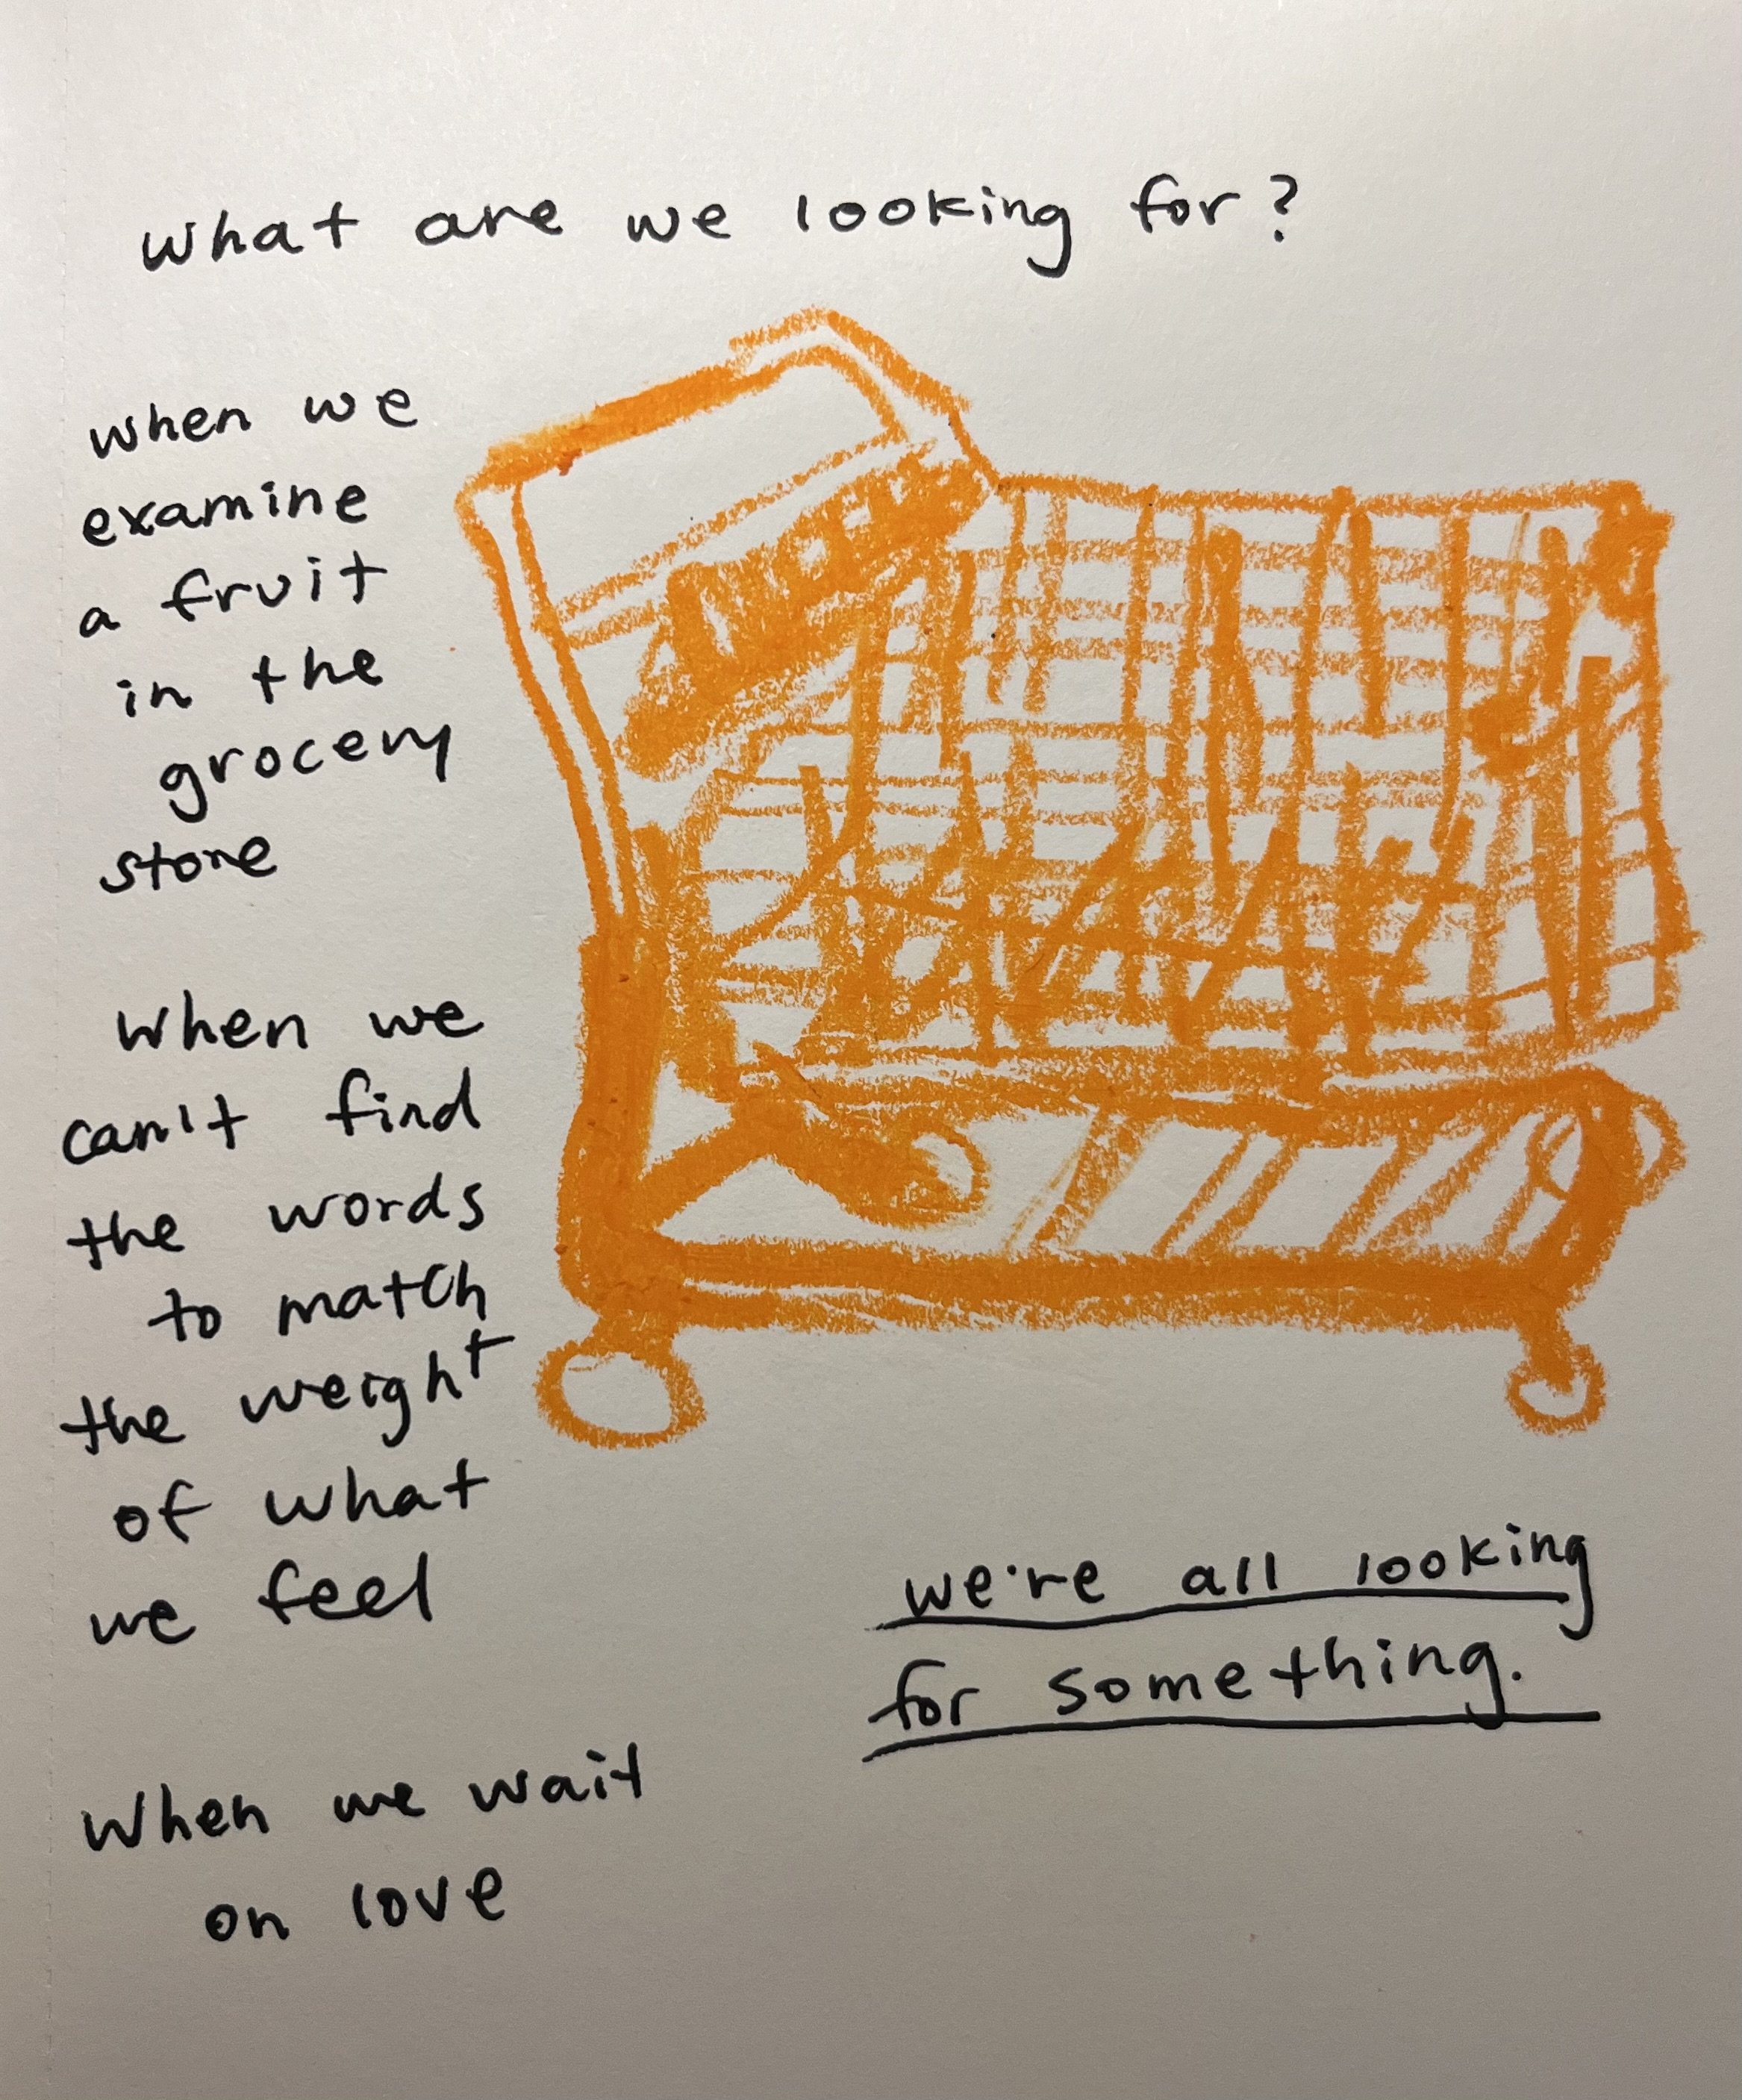 what are we looking for?
when we
examine
a fruit
in the
grocery
store
when we
can't find
the words
to match
the weight
of what
we feel
when we wait
on love
we're all looking
for something.